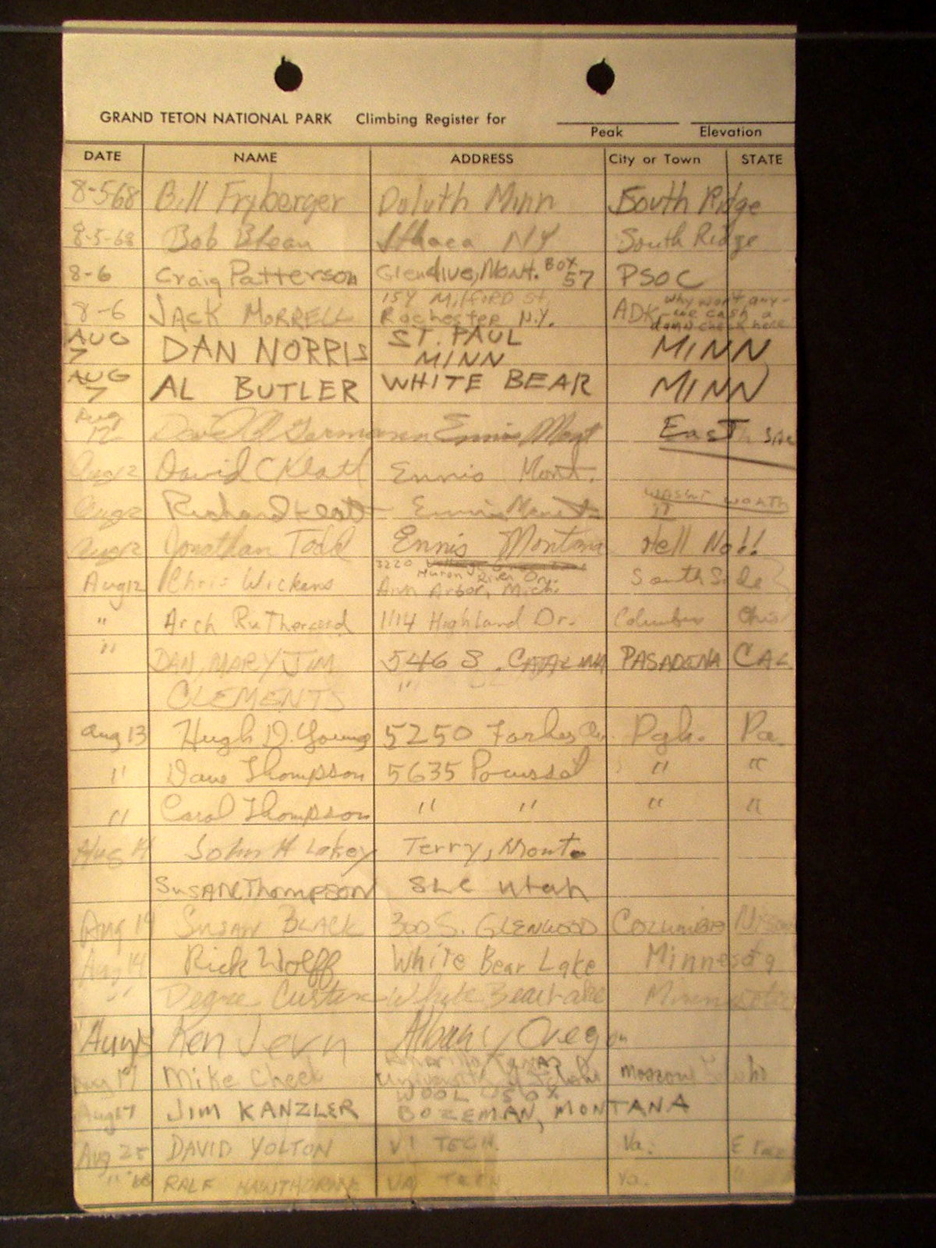 GRAND TETON NATIONAL PARK Climbing Register for
Peak Elevation
DATE NAME ADDRESS City or Town STATE
8-5 68 Bill Fryberger Duluth Minn South Ridge
8-5-68 Bob Ithaca NY South Ridge
8-6 Craig Patterson Glendive, Mont. BOX 57 PSOC
8-6 JACK MORRELL 154 Milford St. Rochester N.Y. ADK why won't any-one cash a damn check here
AUG 7 DAN NORRIS ST. PAUL MINN MINN
AUG 7 AL BUTLER WHITE BEAR MINN
Aug 12 David Ennis Mont East Side
Aug 12 David C Klatt Ennis Mont.
Aug 12 Richard Klatt Ennis Mont wasnt worth it
Aug 12 Jonathan Todd Ennis Montana Hell No!!
Aug 12 Chris Wickens 3220 Huron River Dr. Ann Arbor, Mich. South Side
" Arch Rutherford 1114 Highland Dr. Columbus Ohio
" DAN, MARY, JIM 546 S. CATALINA PASADENA CAL
CLEMENTS "
Aug 13 Hugh D. Young 5250 Forbes Av. Pgh. Pa.
" Dave Thompson 5635 " "
" Carol Thompson " " " "
Aug 14 John H Lakey Terry, Mont.
SUSAN THOMPSON SLC Utah
Aug 14 SUSAN BLACK 300 S. GLENWOOD COLUMBIA
Aug 14 Rick Wolff White Bear Lake Minnesota
" White Bear Lake Minnesota
Aug 15 Ken Jern Albany Oregon
Aug 17 Mike University of Idaho Moscow Idaho
Aug 17 JIM KANZLER BOZEMAN, MONTANA
Aug 25 DAVID YOLTON VI TECH. Va.
" RALF HAWTHORNE VA TECH Va. "